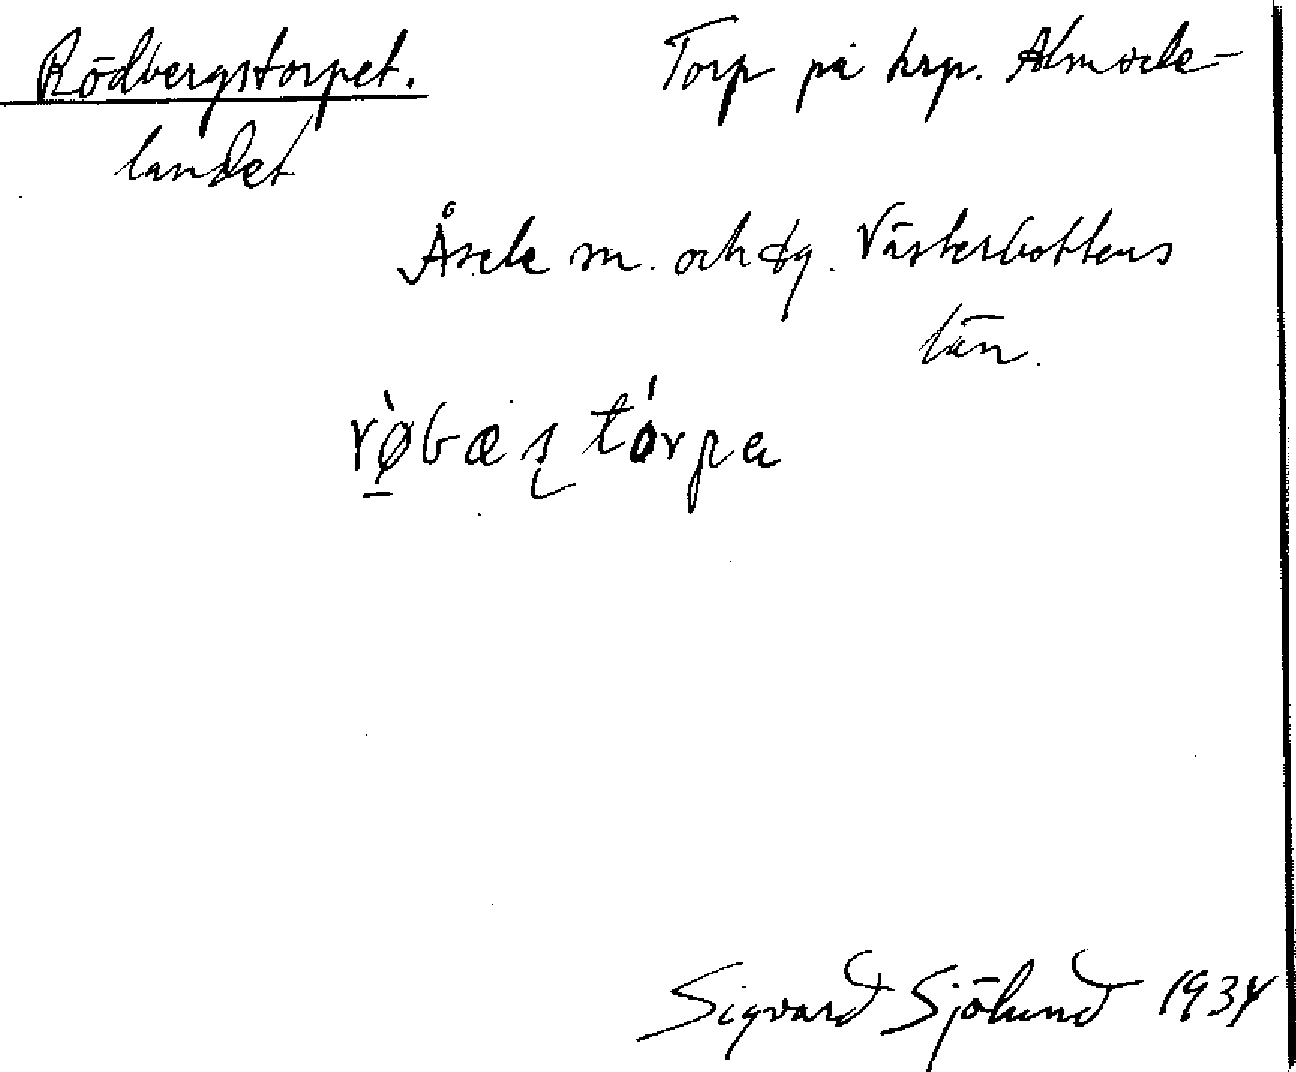 Rödbergstorpet. Torp på krp. Almsele-
landet
Åsele sn. och tg. Västerbottens
län.
Sigvard Sjölund 1934